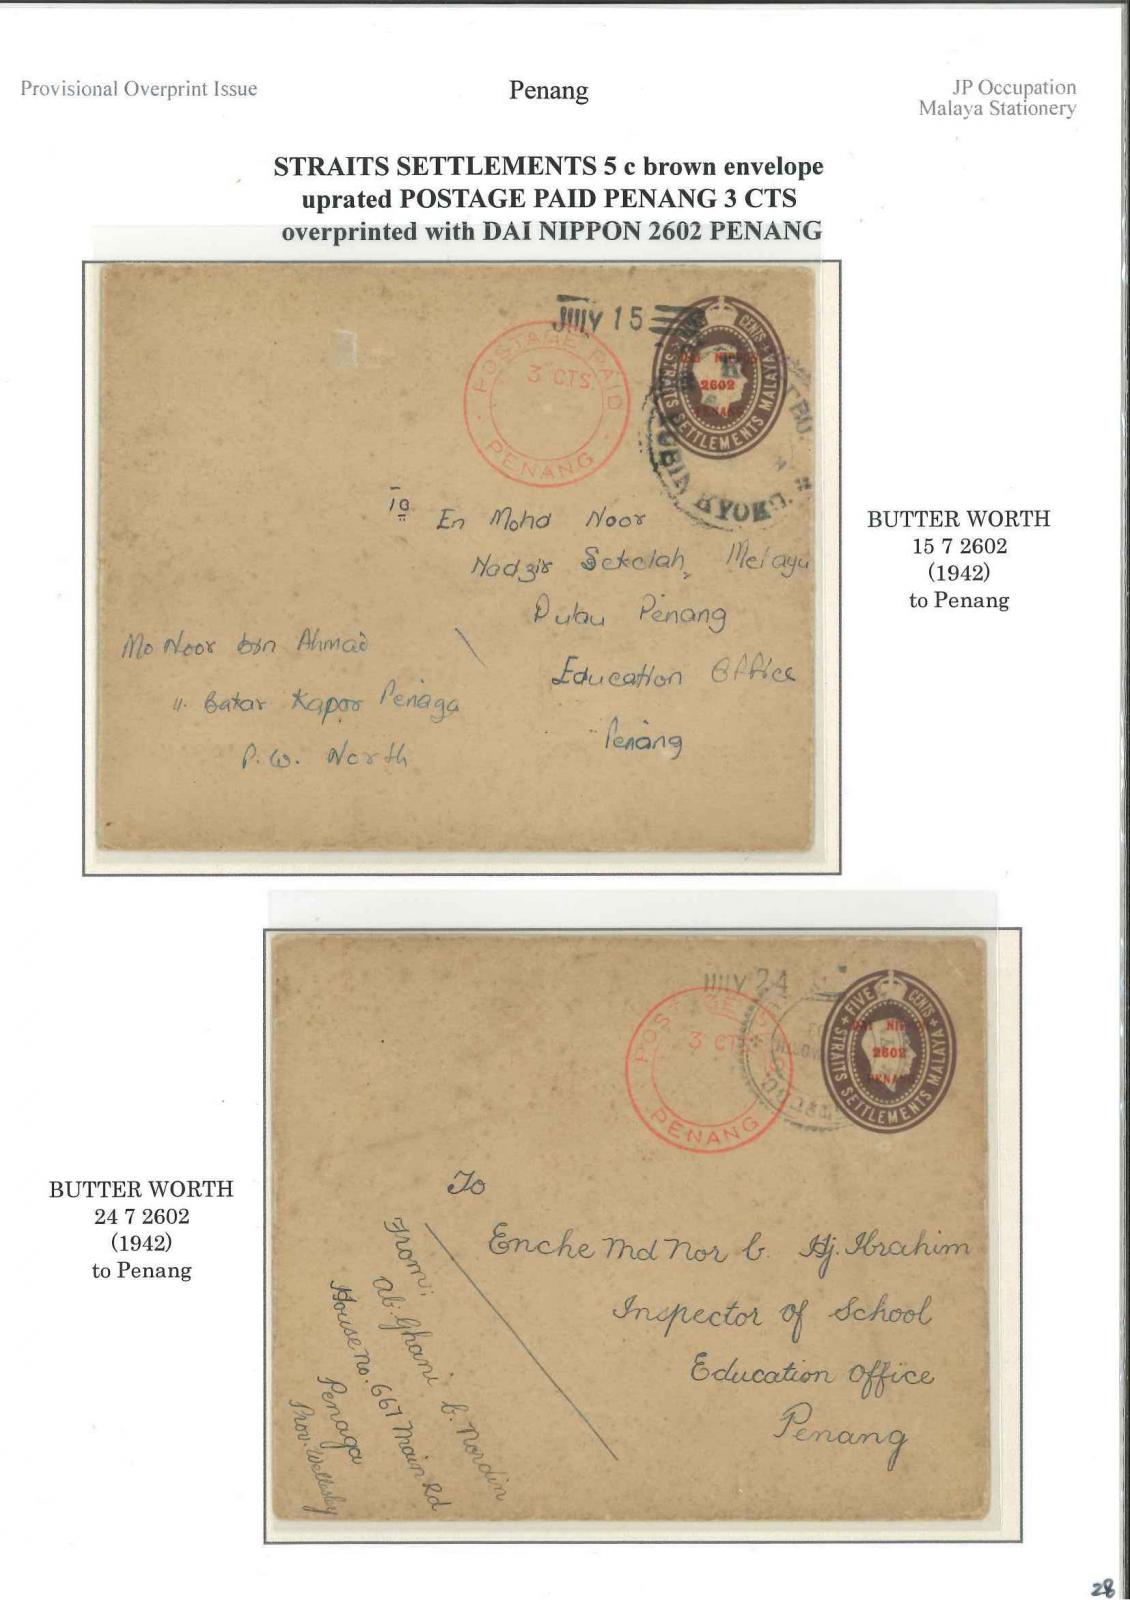 Provisional Overprint Issue
Penang
JP Occupation
Malaya Stationery
STRAITS SETTLEMENTS 5 c brown envelope
uprated POSTAGE PAID PENANG 3 CTS
overprinted with DAI NIPPON 2602 PENANG
JULY 15
POSTAGE PAID
3 CTS.
PENANG
CENTS
STRAITS SETTLEMENTS MALAYA
2602
PENANG
YUBIN KYOKU.
To
En Mohd Noor
Nadzir Sekolah, Melayu
Pulau Penang
Education Office
Penang
Md Noor bin Ahmad
Bakar Kapor Penaga
P.W. North
BUTTER WORTH
15 7 2602
(1942)
to Penang
BUTTER WORTH
24 7 2602
(1942)
to Penang
JULY 24
POSTAGE
3 CTS
PENANG
FIVE CENTS
STRAITS SETTLEMENTS MALAYA
2602
PENANG
To
Enche Md Nor b. Hj. Ibrahim
Inspector of School
Education Office
Penang
From:
Ab. Ghani b. Nordin
House no. 667 Main Rd
Penaga
Prov. Wellesley
28